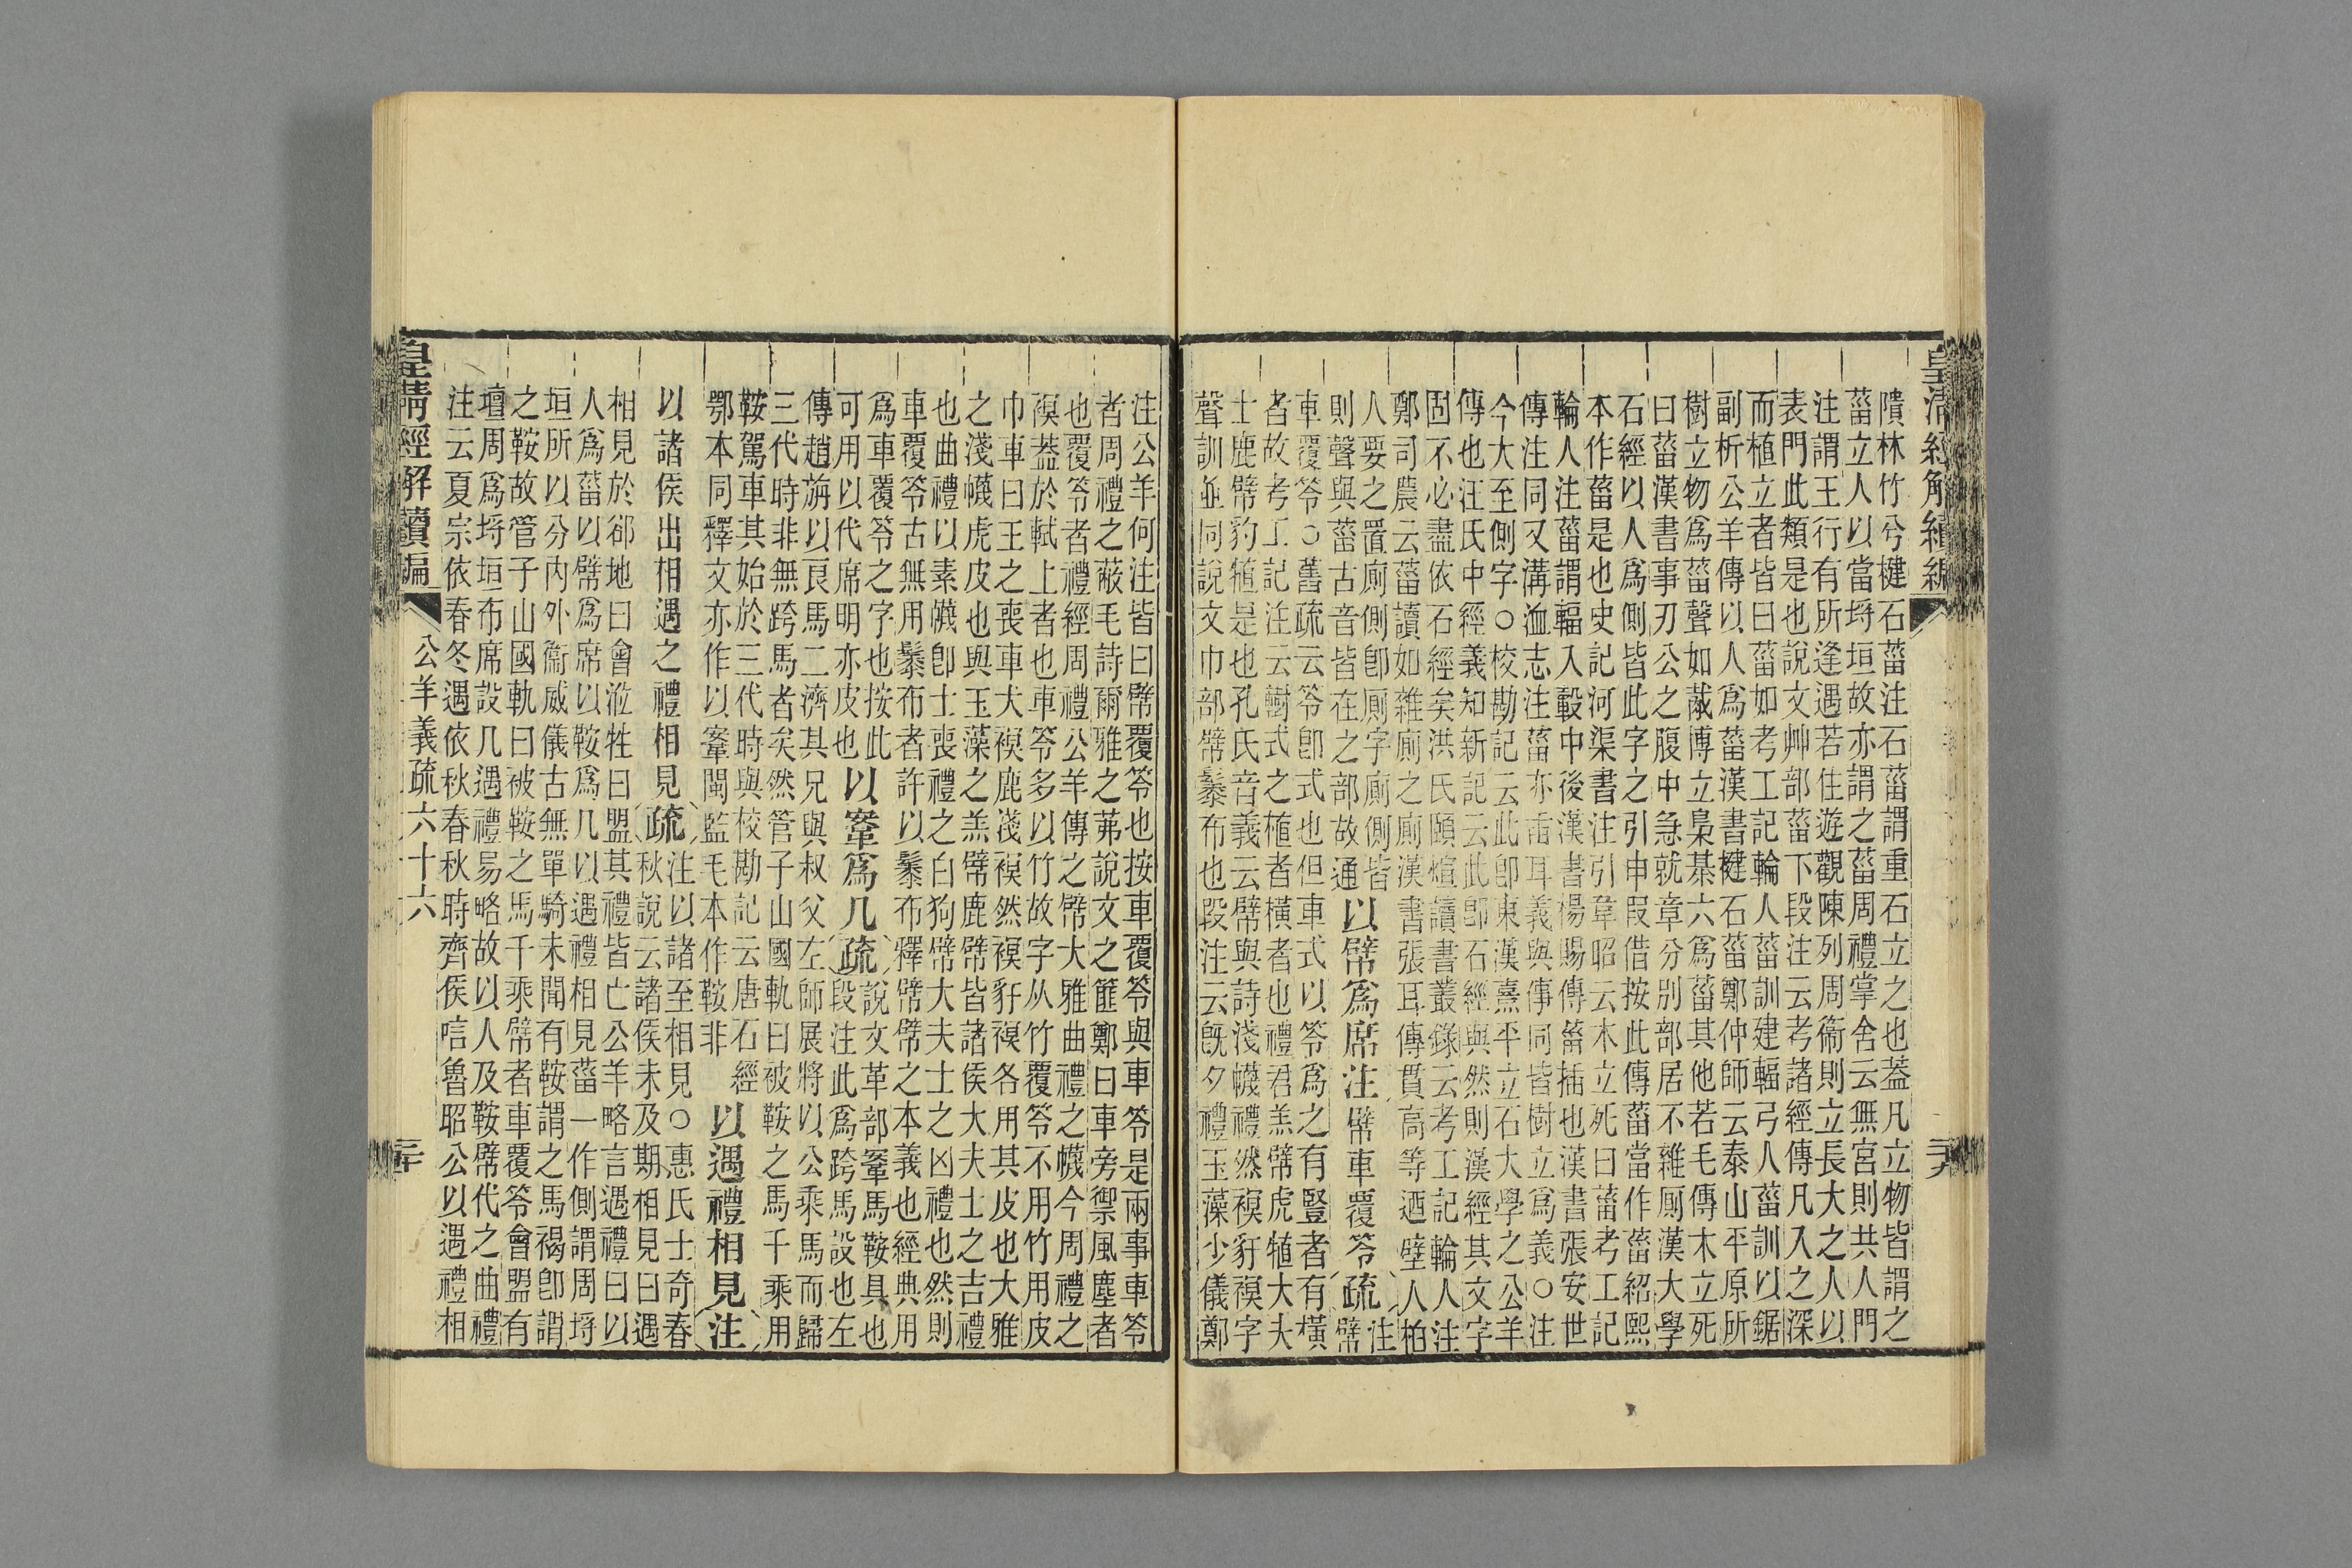 皇清經解續編
隤林竹兮楗石菑注石菑謂重石立之也蓋凡立物皆謂之
菑立人以當埒垣故亦謂之菑周禮掌舍云無宮則共人門
注謂王行有所逢遇若住遊觀陳列周衞則立長大之人以
表門此類是也說文艸部菑下段注云考諸經傳凡入之深
而植立者皆曰菑如考工記輪人菑訓建輻弓人菑訓以鋸
副析公羊傳以人爲菑漢書楗石菑鄭仲師云泰山平原所
樹立物爲菑聲如胾博立梟棊六爲菑其他若毛傳木立死
曰菑漢書事刃公之腹中急就章分別部居不雜厠漢大學
石經以人爲側皆此字之引申叚借按此傳菑當作菑紹熙
本作菑是也史記河渠書注引韋昭云木立死曰菑考工記
輪人注菑謂輻入轂中後漢書楊賜傳菑插也漢書張安世
傳注同又溝洫志注菑亦臿耳義與倳同皆樹立爲義○注
今大至側字○校勘記云此卽東漢熹平立石大學之公羊
傳也汪氏中經義知新記云此卽石經與然則漢經其文字
固不必盡依石經矣洪氏頤煊讀書叢錄云考工記輪人注
鄭司農云菑讀如雜廁之廁漢書張耳傳貫高等迺壁人柏
人要之置廁側卽廁字廁側皆
則聲與菑古音皆在之部故通
以幦爲席注幦車覆笭疏注幦
車覆笭○舊疏云笭卽式也但車式以笭爲之有豎者有橫
者故考工記注云轛式之植者橫者也禮君羔幦虎犆大夫
士鹿幦豹犆是也孔氏音義云幦與詩淺幭禮然䙪豻䙪字
聲訓並同說文巾部幦䰍布也段注云旣夕禮玉藻少儀鄭
注公羊何注皆曰幦覆笭也按車覆笭與車笭是兩事車笭
者周禮之蔽毛詩爾雅之茀說文之篚鄭曰車旁禦風塵者
也覆笭者禮經周禮公羊傳之幦大雅曲禮之幭今周禮之
䙪蓋於軾上者也車笭多以竹故字从竹覆笭不用竹用皮
巾車曰王之喪車犬䙪鹿淺䙪然䙪豻䙪各用其皮也大雅
之淺幭虎皮也與玉藻之羔幦鹿幦皆諸侯大夫士之吉禮
也曲禮以素幭卽士喪禮之白狗幦大夫士之凶禮也然則
車覆笭古無用䰍布者許以䰍布釋幦幦之本義也經典用
爲車覆笭之字也按此
可用以代席明亦皮也
以鞌爲几疏說文革部鞌馬鞍具也
段注此爲跨馬設也左
傳趙旃以良馬二濟其兄與叔父左師展將以公乘馬而歸
三代時非無跨馬者矣然管子山國軌曰被鞍之馬千乘用
鞍駕車其始於三代時與校勘記云唐石經
鄂本同釋文亦作以鞌閩監毛本作鞍非
以遇禮相見注
以諸侯出相遇之禮相見疏注以諸至相見○惠氏士奇春
秋說云諸侯未及期相見曰遇
相見於郤地曰會涖牲曰盟其禮皆亡公羊略言遇禮曰以
人爲菑以幦爲席以鞍爲几以遇禮相見菑一作側謂周埒
垣所以分內外衞威儀古無單騎未聞有鞍謂之馬褐卽謂
之鞍故管子山國軌曰被鞍之馬千乘幦者車覆笭會盟有
壇周爲埒垣布席設几遇禮易略故以人及鞍幦代之曲禮
注云夏宗依春冬遇依秋春秋時齊侯唁魯昭公以遇禮相
皇淸經解續編
公羊義疏六十六